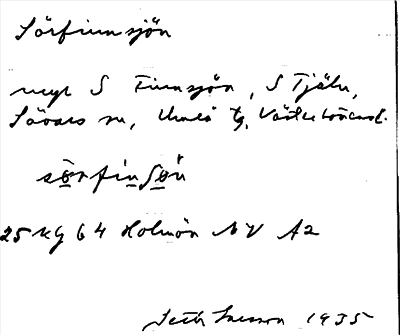 Sörfinnsjön
myr S Finnsjön, S Tjäln,
Sävars sn, Umeå tg, Västerbottenl.
sörfinʃön
25 Kg 64 Holmön NV A2
Seth 1935